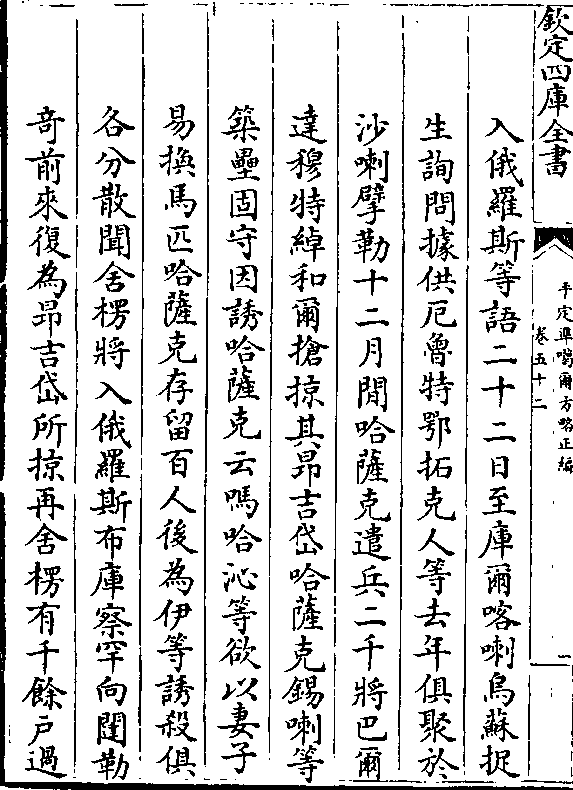 欽定四庫全書
平定準噶爾方略正編
卷五十二
一
入俄羅斯等語二十二日至庫爾喀喇烏蘇捉
生詢問據供厄魯特鄂拓克人等去年俱聚於
沙喇擘勒十二月間哈薩克遣兵二千將巴爾
達穆特綽和爾搶掠其昂吉岱哈薩克錫喇等
築壘固守因誘哈薩克云嗎哈沁等欲以妻子
易換馬匹哈薩克存留百人後為伊等誘殺俱
各分散聞舍楞將入俄羅斯布庫察罕向闥勒
奇前來復為昂吉岱所掠再舍楞有千餘户過